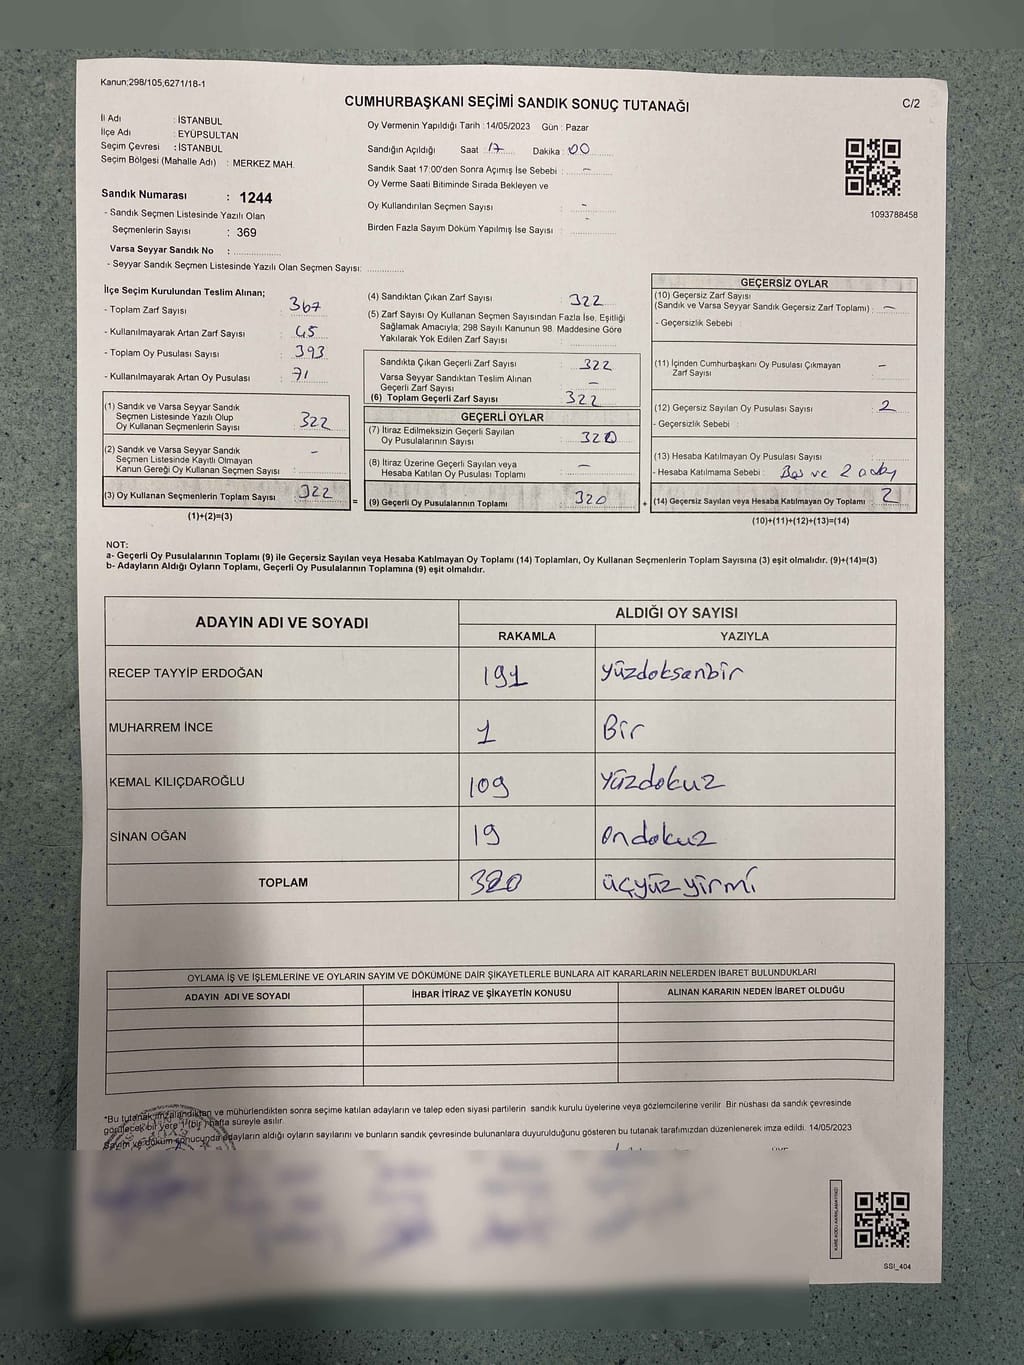 Kanun;298/105,6271/18-1
CUMHURBAŞKANI SEÇİMİ SANDIK SONUÇ TUTANAĞI
C/2
İl Adı : İSTANBUL
İlçe Adı : EYÜPSULTAN
Seçim Çevresi : İSTANBUL
Seçim Bölgesi (Mahalle Adı) : MERKEZ MAH.
Sandık Numarası : 1244
- Sandık Seçmen Listesinde Yazılı Olan
Seçmenlerin Sayısı : 369
Varsa Seyyar Sandık No :
- Seyyar Sandık Seçmen Listesinde Yazılı Olan Seçmen Sayısı:
Oy Vermenin Yapıldığı Tarih : 14/05/2023 Gün : Pazar
Sandığın Açıldığı Saat 17 Dakika : 00
Sandık Saat 17:00'den Sonra Açımış İse Sebebi : -
Oy Verme Saati Bitiminde Sırada Bekleyen ve
Oy Kullandırılan Seçmen Sayısı : -
Birden Fazla Sayım Döküm Yapılmış İse Sayısı : -
1093788458
İlçe Seçim Kurulundan Teslim Alınan;
- Toplam Zarf Sayısı : 367
- Kullanılmayarak Artan Zarf Sayısı : 45
- Toplam Oy Pusulası Sayısı : 393
- Kullanılmayarak Artan Oy Pusulası : 71
(1) Sandık ve Varsa Seyyar Sandık
Seçmen Listesinde Yazılı Olup
Oy Kullanan Seçmenlerin Sayısı : 322
(2) Sandık ve Varsa Seyyar Sandık
Seçmen Listesinde Kayıtlı Olmayan
Kanun Gereği Oy Kullanan Seçmen Sayısı : -
(3) Oy Kullanan Seçmenlerin Toplam Sayısı : 322
(1)+(2)=(3)
=
(4) Sandıktan Çıkan Zarf Sayısı : 322
(5) Zarf Sayısı Oy Kullanan Seçmen Sayısından Fazla İse, Eşitliği
Sağlamak Amacıyla; 298 Sayılı Kanunun 98. Maddesine Göre
Yakılarak Yok Edilen Zarf Sayısı :
Sandıkta Çıkan Geçerli Zarf Sayısı : 322
Varsa Seyyar Sandıktan Teslim Alınan
Geçerli Zarf Sayısı : -
(6) Toplam Geçerli Zarf Sayısı : 322
GEÇERLİ OYLAR
(7) İtiraz Edilmeksizin Geçerli Sayılan
Oy Pusulalarının Sayısı : 320
(8) İtiraz Üzerine Geçerli Sayılan veya
Hesaba Katılan Oy Pusulası Toplamı : -
(9) Geçerli Oy Pusulalarının Toplamı : 320
+
GEÇERSİZ OYLAR
(10) Geçersiz Zarf Sayısı
(Sandık ve Varsa Seyyar Sandık Geçersiz Zarf Toplamı) : -
- Geçersizlik Sebebi :
(11) İçinden Cumhurbaşkanı Oy Pusulası Çıkmayan
Zarf Sayısı : -
(12) Geçersiz Sayılan Oy Pusulası Sayısı : 2
- Geçersizlik Sebebi :
(13) Hesaba Katılmayan Oy Pusulası Sayısı :
- Hesaba Katılmama Sebebi : Boş ve 2 aday
(14) Geçersiz Sayılan veya Hesaba Katılmayan Oy Toplamı : 2
(10)+(11)+(12)+(13)=(14)
NOT:
a- Geçerli Oy Pusulalarının Toplamı (9) ile Geçersiz Sayılan veya Hesaba Katılmayan Oy Toplamı (14) Toplamları, Oy Kullanan Seçmenlerin Toplam Sayısına (3) eşit olmalıdır. (9)+(14)=(3)
b- Adayların Aldığı Oyların Toplamı, Geçerli Oy Pusulalarının Toplamına (9) eşit olmalıdır.
ADAYIN ADI VE SOYADI ALDIĞI OY SAYISI
RAKAMLA YAZIYLA
RECEP TAYYİP ERDOĞAN 191 yüzdoksanbir
MUHARREM İNCE 1 Bir
KEMAL KILIÇDAROĞLU 109 Yüzdokuz
SİNAN OĞAN 19 Ondokuz
TOPLAM 320 üçyüzyirmi
OYLAMA İŞ VE İŞLEMLERİNE VE OYLARIN SAYIM VE DÖKÜMÜNE DAİR ŞİKAYETLERLE BUNLARA AİT KARARLARIN NELERDEN İBARET BULUNDUKLARI
ADAYIN ADI VE SOYADI İHBAR İTİRAZ VE ŞİKAYETİN KONUSU ALINAN KARARIN NEDEN İBARET OLDUĞU
*Bu tutanak imzalandıktan ve mühürlendikten sonra seçime katılan adayların ve talep eden siyasi partilerin sandık kurulu üyelerine veya gözlemcilerine verilir. Bir nüshası da sandık çevresinde
görülecek bir yere 1 (bir) hafta süreyle asılır.
Sayım ve döküm sonucunda adayların aldığı oyların sayılarını ve bunların sandık çevresinde bulunanlara duyurulduğunu gösteren bu tutanak tarafımızdan düzenlenerek imza edildi. 14/05/2023
SSI_404